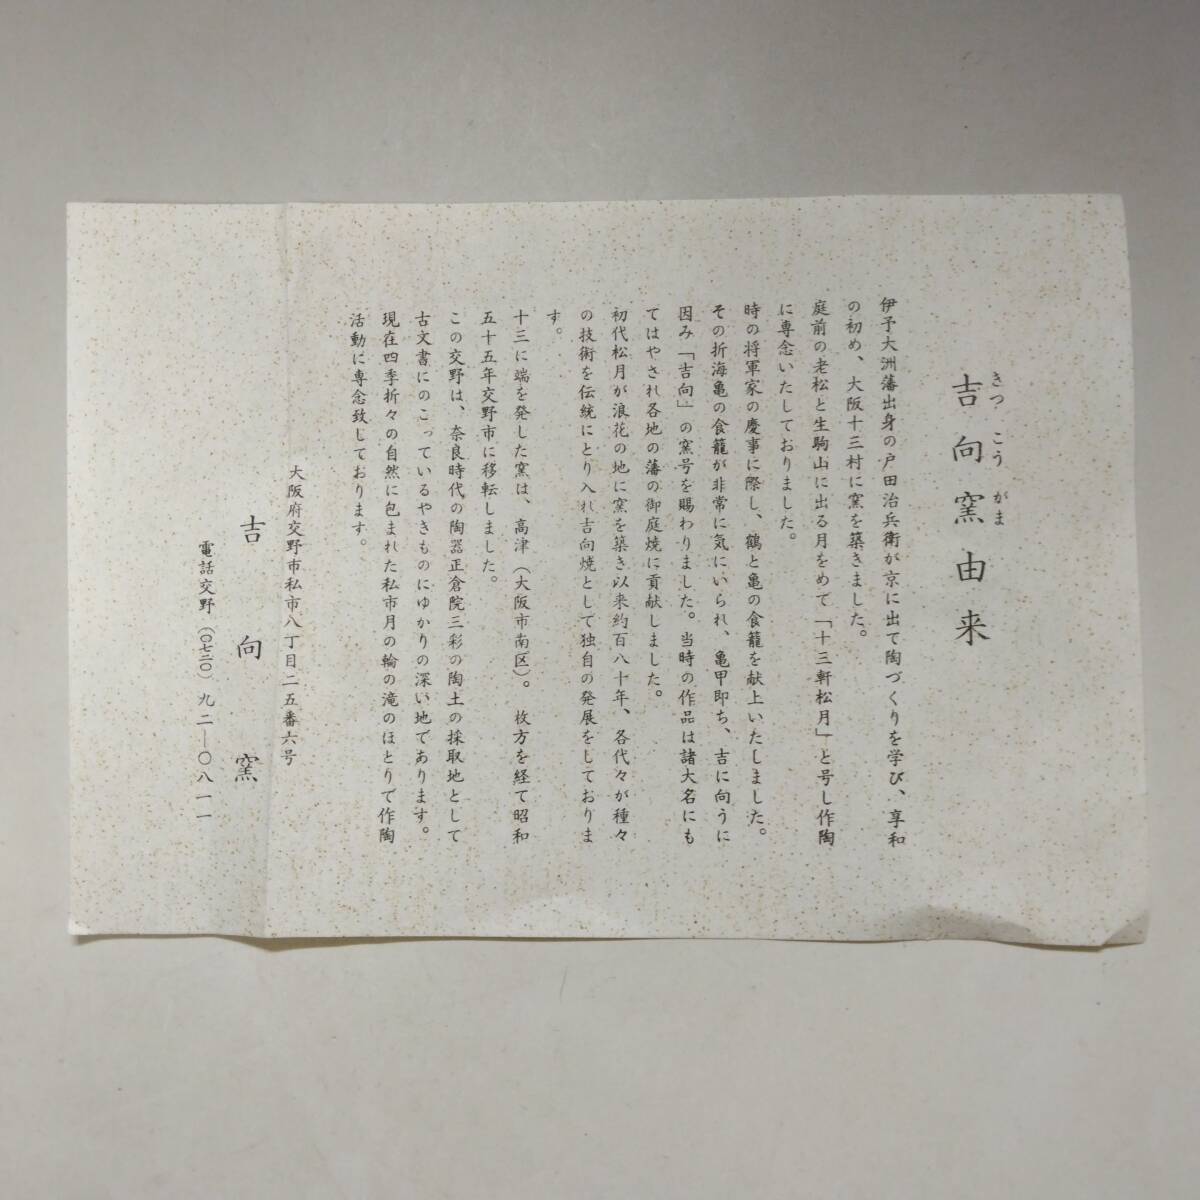 きっこうがま
吉向窯由来
伊予大洲藩出身の戸田治兵衛が京に出て陶づくりを学び、享和
の初め、大阪十三村に窯を築きました。
庭前の老松と生駒山に出る月をめで「十三軒松月」と号し作陶
に専念いたしておりました。
時の将軍家の慶事に際し、鶴と亀の食籠を献上いたしました。
その折海亀の食籠が非常に気にいられ、亀甲即ち、吉に向うに
因み「吉向」の窯号を賜わりました。当時の作品は諸大名にも
てはやされ各地の藩の御庭焼に貢献しました。
初代松月が浪花の地に窯を築き以来約百八十年、各代々が種々
の技術を伝統にとり入れ吉向焼として独自の発展をしておりま
す。
十三に端を発した窯は、高津（大阪市南区）。枚方を経て昭和
五十五年交野市に移転しました。
この交野は、奈良時代の陶器正倉院三彩の陶土の採取地として
古文書にのこっているやきものにゆかりの深い地であります。
現在四季折々の自然に包まれた私市月の輪の滝のほとりで作陶
活動に専念致しております。
大阪府交野市私市八丁目二五番六号
吉向窯
電話交野（〇七二〇）九二―〇八一一